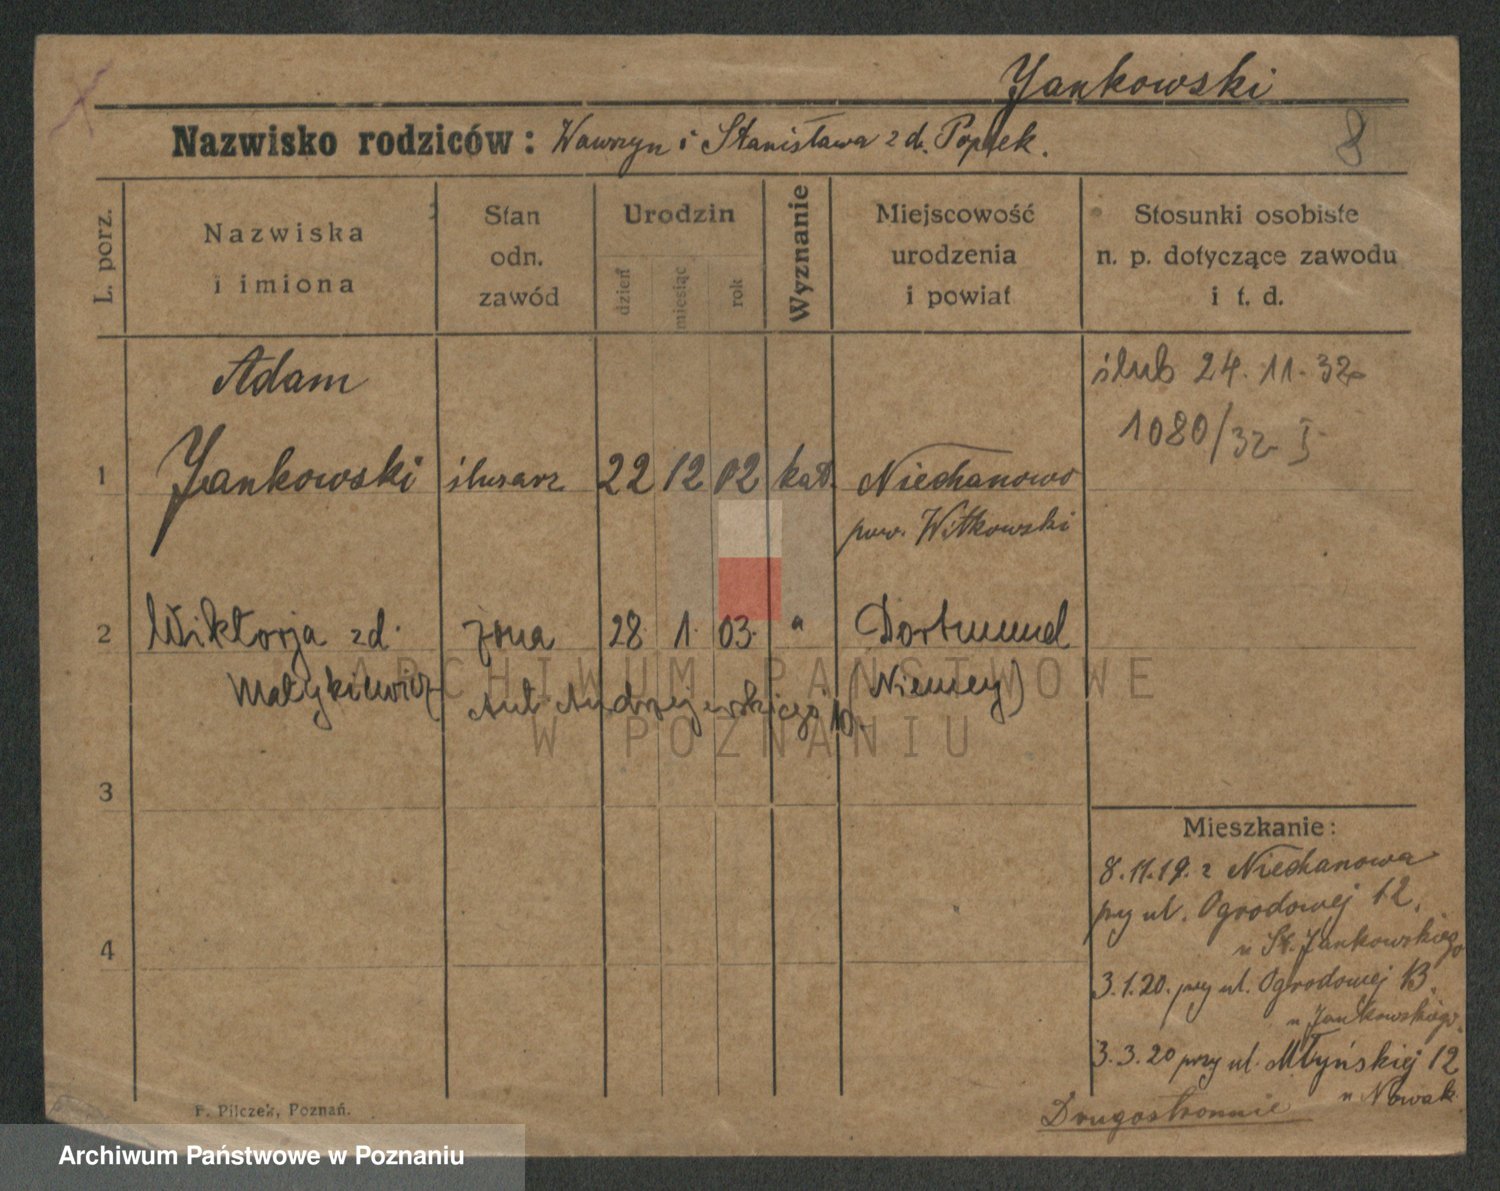 Jankowski
Nazwisko rodziców: Wawrzyn i Stanisława z d. Popiek.
8
L. porz.
Nazwiska
i imiona
Stan
odn.
zawód
Urodzin
dzień
miesiąc
rok
Wyznanie
Miejscowość
urodzenia
i powiat
Stosunki osobiste
n. p. dotyczące zawodu
i t. d.
ślub 24.11.32
1080/32 I
Adam
1 Jankowski ślusarz 22 12 02 kat. Niechanowo
pow. Witkowski
2 Wiktorja zd. żona 28. 1. 03. " Dortmund
Matykiewicz (Niemcy)
Andrzejewskiego 10.
3
4
Mieszkanie:
8.11.19. z Niechanowa
przy ul. Ogrodowej 12.
u St. Jankowskiego
3.1.20. przy ul. Ogrodowej 13.
u Jankowskiego.
3.3.20 przy ul. Młyńskiej 12
u Nowak
Drugostronnie
F. Pilczek, Poznań.
ARCHIWUM PAŃSTWOWE
W POZNANIU
Archiwum Państwowe w Poznaniu